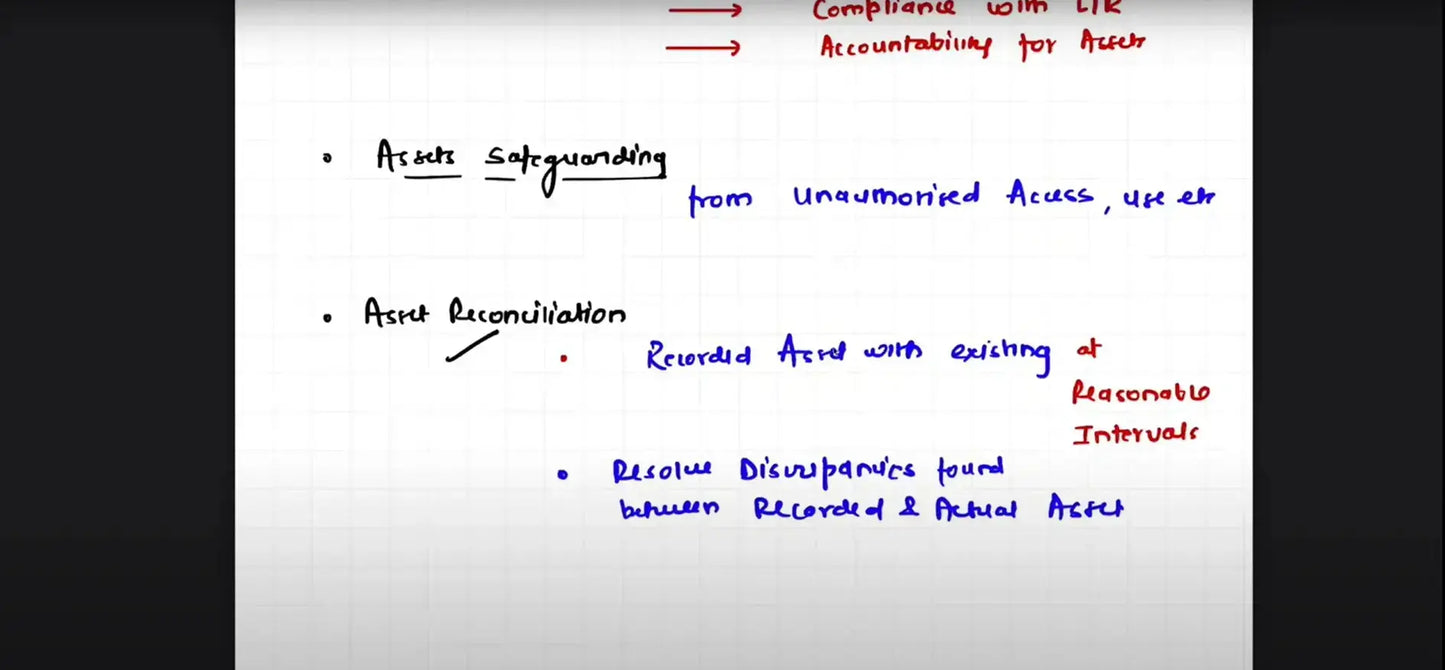 → Compliance with L&R
→ Accountability for Assets
• Assets Safeguarding
from Unauthorised Access, use etc
• Asset Reconciliation
• Recorded Asset with existing at
Reasonable
Intervals
• Resolve Discrepancies found
between Recorded & Actual Asset